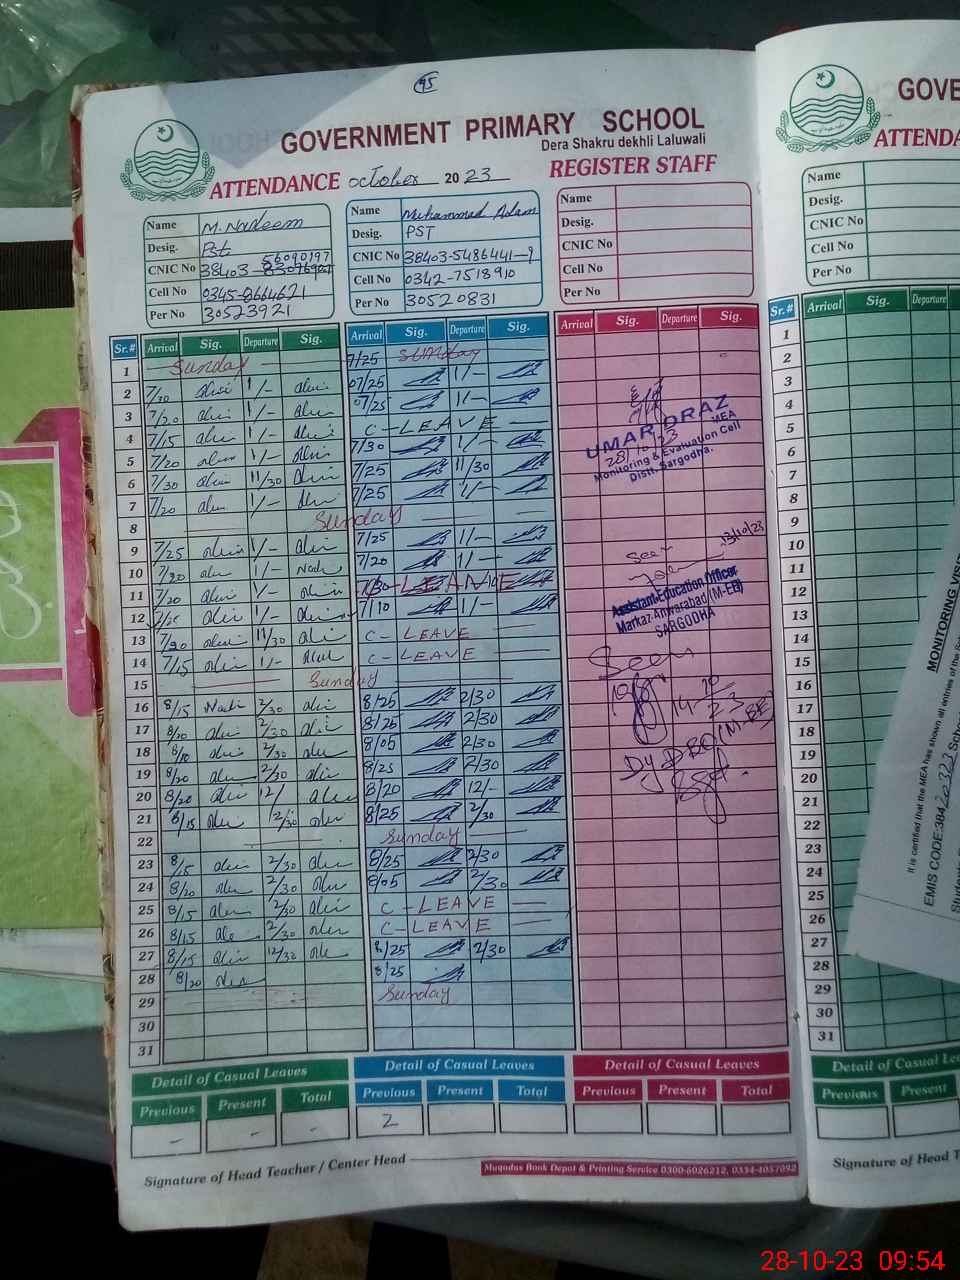 45
GOVERNMENT PRIMARY SCHOOL
Dera Shakru dekhli Laluwali
ATTENDANCE October 2023 REGISTER STAFF
Name M. Nadeem
Desig. Pst
CNIC No 38403-
56090197
Cell No 0345-8664621
Per No 30523921
Name Muhammad Aslam
Desig. PST
CNIC No 38403-5486441-9
Cell No 0342-7518910
Per No 30520831
Name
Desig.
CNIC No
Cell No
Per No
Sr.# Arrival Sig. Departure Sig. Arrival Sig. Departure Sig. Arrival Sig. Departure Sig.
1 Sunday 7/25 Sunday
2 7/20 1/- 07/25 1/-
3 7/20 1/- 07/25 1/-
4 7/15 1/- C-LEAVE
5 7/20 1/- 7/30 1/-
6 7/30 11/30 7/25 11/30
7 7/20 1/- 7/25 1/-
8 Sunday
9 7/25 1/- 7/25 1/-
10 7/20 1/- 7/20 1/-
11 7/20 1/- C-LEAVE
12 1/- 7/10 1/-
13 7/20 11/30 C-LEAVE
14 7/15 1/- C-LEAVE
15 Sunday
16 8/15 2/30 8/25 2/30
17 8/20 2/30 8/25 2/30
18 8/10 2/30 8/05 2/30
19 8/20 2/30 8/25 2/30
20 8/20 12/ 8/20 12/-
21 8/15 2/30 8/25 2/30
22 Sunday
23 8/15 2/30 8/25 2/30
24 8/20 2/30 8/05 2/30
25 8/15 2/30 C-LEAVE
26 8/15 2/30 C-LEAVE
27 8/15 12/30 8/25 2/30
28 8/20 8/25
29 Sunday
30
31
UMAR DRAZ
MEA
28/10/23
Monitoring & Evaluation Cell
Distt. Sargodha.
13/10/23
Seen
Assistant Education Officer
Markaz Anwarabad (M-EE)
SARGODHA
Seen
14-10-23
Dy DEO (M-EE)
Sgd.
Detail of Casual Leaves Detail of Casual Leaves Detail of Casual Leaves
Previous Present Total Previous Present Total Previous Present Total
- - - 2
Signature of Head Teacher / Center Head
Muqadas Book Depot & Printing Service 0300-6026212, 0334-4057092
GOVE
ATTENDA
Name
Desig.
CNIC No
Cell No
Per No
Sr.# Arrival Sig. Departure
1
2
3
4
5
6
7
8
9
10
11
12
13
14
15
16
17
18
19
20
21
22
23
24
25
26
27
28
29
30
31
MONITORING VISIT
It is certified that the MEA has shown all entries of the
EMIS CODE:38420323 Scho
Detail of Casual Le
Previous Present
Signature of Head T
28-10-23 09:54